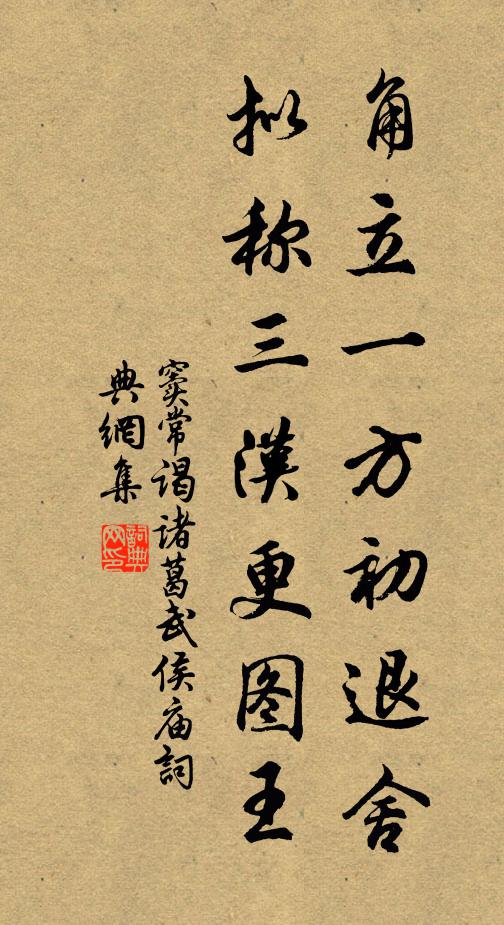 角立一方初退舍
拟称三漢更图王
窦常谒诸葛武侯庙詞
典網集
詞典网印